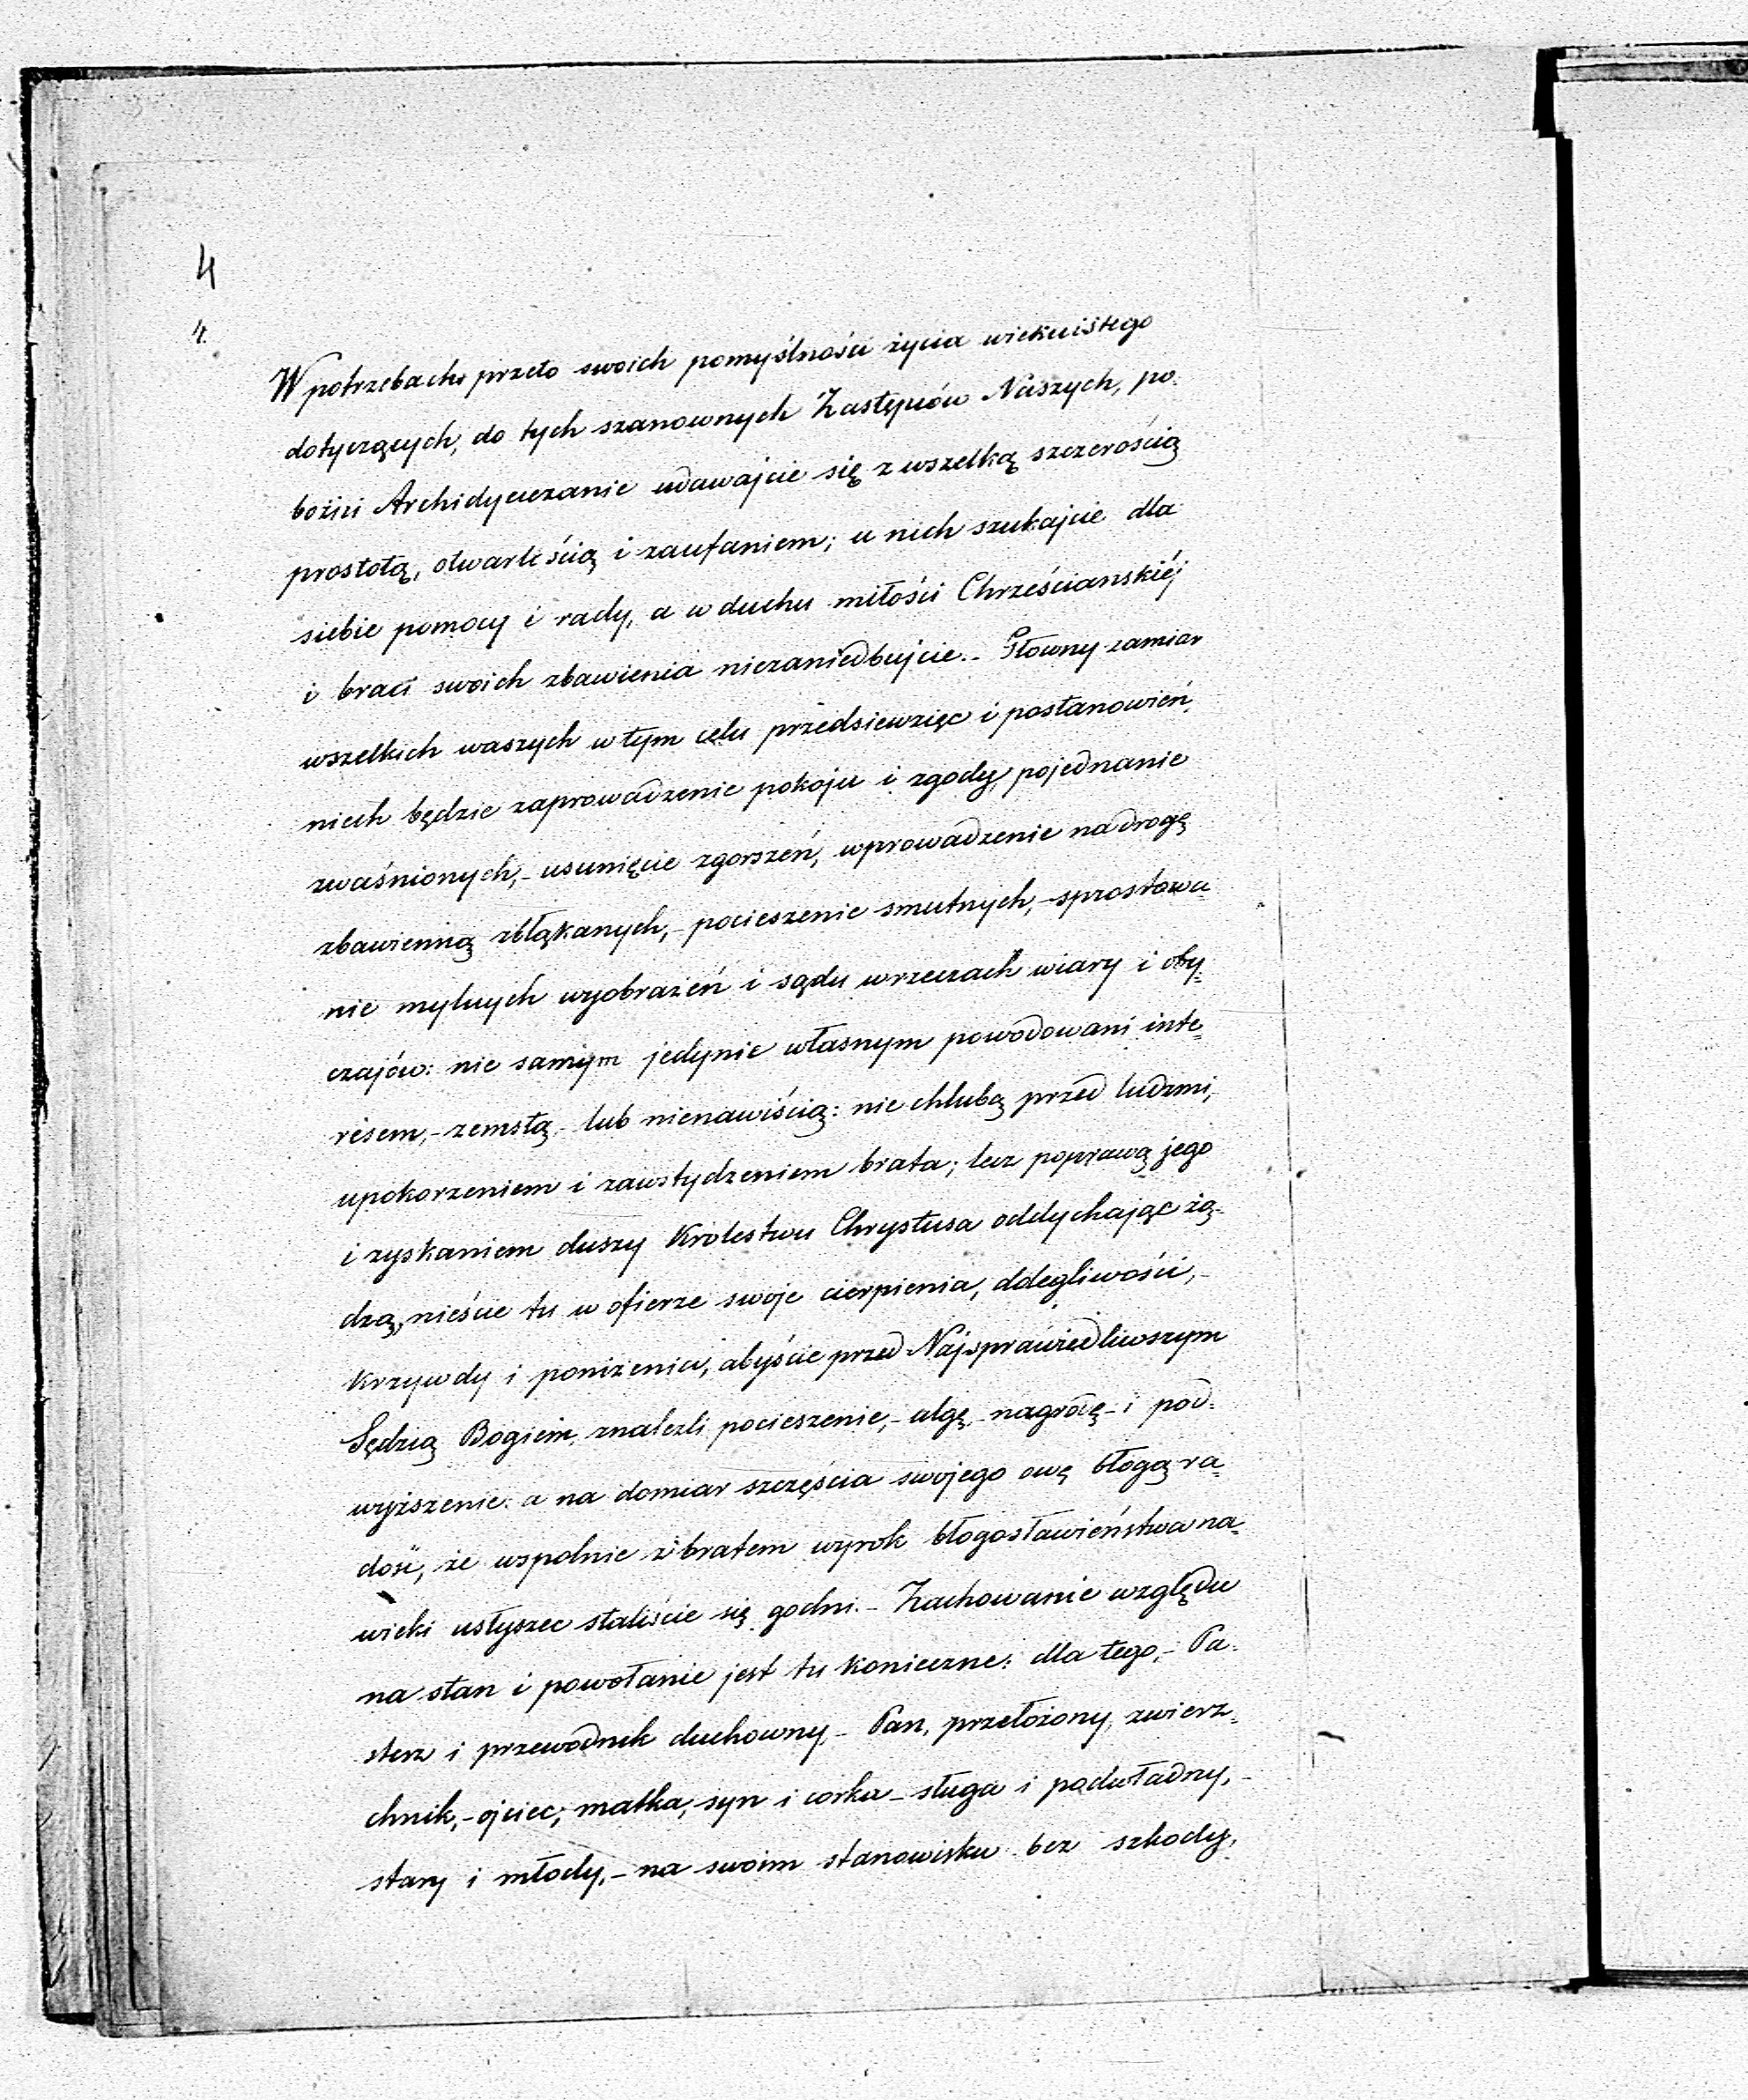 4
4.
W potrzebach przeto swoich pomyślności życia wiekuistego
dotyczących, do tych szanownych Zastępców Naszych, po-
bożni Archidyecezanie udawajcie się z wszelką szczerością
prostotą, otwartością i zaufaniem; u nich szukajcie dla
siebie pomocy i rady, a w duchu miłości Chrześcianskiéj
i braci swoich zbawienia niezaniedbujcie. - Głowny zamiar
wszelkich waszych w tym celu przedsiewzięc i postanowień,
niech będzie zaprowadzenie pokoju i zgody, pojednanie
zwaśnionych, - usunięcie zgorszeń, wprowadzenie na drogę
zbawienną zbłąkanych, - pocieszenie smutnych, - sprostowa-
nie mylnych wyobrażeń i sądu w rzeczach wiary i oby-
czajów: nie samym jedynie własnym powodowani inte-
résem, - zemstą, - lub nienawiścią: nie chlubą przed ludzmi,
upokorzeniem i zawstydzeniem brata; lecz poprawą jego
i zyskaniem duszy Krolestwu Chrystusa oddychając żą-
dzą, nieście tu w ofierze swoje cierpienia, ddegliwości, -
krzywdy i poniżenia, abyście przed Najsprawiedliwszym
Sędzią Bogiem, znalezli pocieszenie, - ulgę, - nagrodę - i pod-
wyższenie: a na domiar szczęścia swojego owę błogą ra-
dość, że wspolnie z bratem wyrok błogosławieństwa na-
wieki usłyszec staliście się godni. - Zachowanie względu
na stan i powołanie jest tu konieczne: dla tego, - Pa-
sterz i przewodnik duchowny, - Pan, przełożony, zwierz-
chnik, - ojciec, matka, syn i corka - sługa i podwładny, -
stary i młody, - na swoim stanowisku bez szkody,